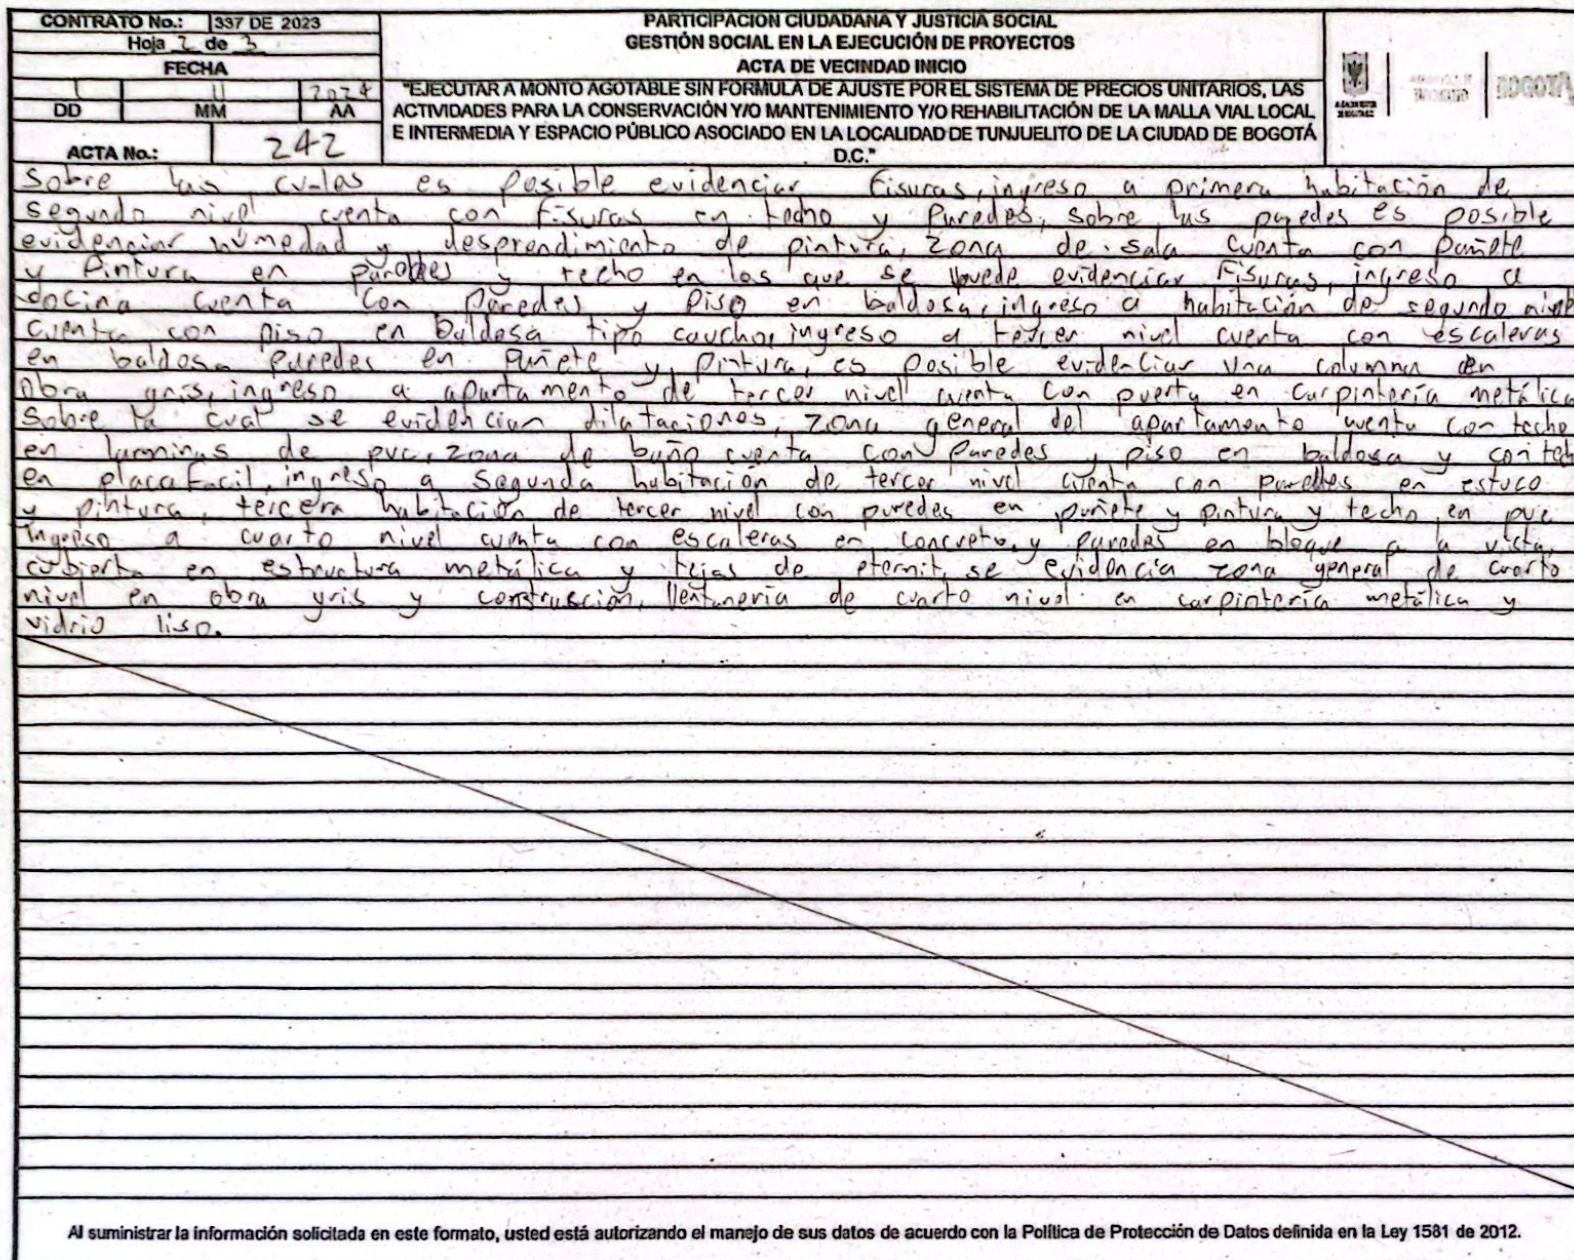 CONTRATO No.: 337 DE 2023
Hoja 2 de 3
FECHA
1 11 2024
DD MM AA
ACTA No.: 242
PARTICIPACION CIUDADANA Y JUSTICIA SOCIAL
GESTIÓN SOCIAL EN LA EJECUCIÓN DE PROYECTOS
ACTA DE VECINDAD INICIO
"EJECUTAR A MONTO AGOTABLE SIN FORMULA DE AJUSTE POR EL SISTEMA DE PRECIOS UNITARIOS, LAS
ACTIVIDADES PARA LA CONSERVACIÓN Y/O MANTENIMIENTO Y/O REHABILITACIÓN DE LA MALLA VIAL LOCAL
E INTERMEDIA Y ESPACIO PÚBLICO ASOCIADO EN LA LOCALIDAD DE TUNJUELITO DE LA CIUDAD DE BOGOTÁ
D.C."
Sobre las cuales es posible evidenciar fisuras, ingreso a primera habitación de
segundo nivel cuenta con fisuras en techo y paredes, sobre las paredes es posible
evidenciar húmedad y desprendimiento de pintura, zona de sala cuenta con pañete
y pintura en paredes y techo en los que se puede evidenciar fisuras, ingreso a
cocina cuenta con paredes y piso en baldosa, ingreso a habitación de segundo nivel
cuenta con piso en baldosa tipo caucho, ingreso a tercer nivel cuenta con escaleras
en baldosa paredes en pañete y pintura, es posible evidenciar una columna en
obra gris, ingreso a apartamento de tercer nivel cuenta con puerta en carpintería metálica
sobre la cual se evidencian dilataciones, zona general del apartamento cuenta con techo
en laminas de pvc, zona de baño cuenta con paredes y piso en baldosa y con tech
en placa facil, ingreso a segunda habitación de tercer nivel cuenta con paredes en estuco
y pintura, tercera habitación de tercer nivel con paredes en pañete y pintura y techo en pvc
Ingreso a cuarto nivel cuenta con escaleras en concreto y paredes en bloque a la vista,
cubierta en estructura metálica y tejas de eternit, se evidencia zona general de cuarto
nivel en obra gris y construcción, Ventanería de cuarto nivel en carpintería metálica y
vidrio liso.
Al suministrar la información solicitada en este formato, usted está autorizando el manejo de sus datos de acuerdo con la Política de Protección de Datos definida en la Ley 1581 de 2012.